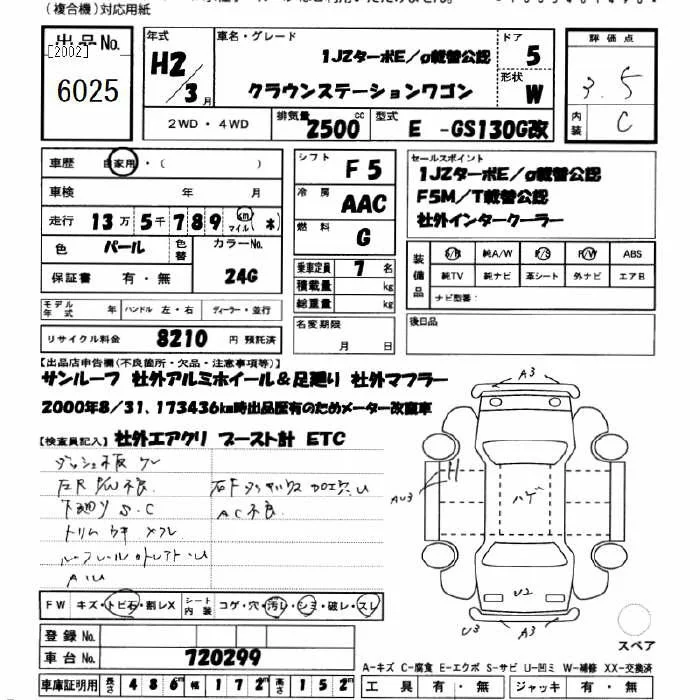 (複合機)対応用紙
出品No.
[2002]
6025
年式
H2/3月
車名・グレード
1JZターボE/g載替公認
クラウンステーションワゴン
ドア
5
形状
W
評価点
3.5
内装
C
2WD・4WD
排気量
2500cc
型式
E -GS130G改
車歴
自家用・( )
車検
年 月
走行
13万5千789km マイル(*)
色
パール
色替
カラーNo.
24G
保証書
有・無
モデル年式
年
ハンドル 左・右
ディーラー・並行
リサイクル料金
8210円 預託済
シフト
F5
冷房
AAC
燃料
G
乗車定員 7名
積載量 kg
総重量 kg
名変期限
月 日
セールスポイント
1JZターボE/g載替公認
F5M/T載替公認
社外インタークーラー
装備品
S/R 純A/W P/S P/W ABS
純TV 純ナビ 革シート 外ナビ エアB
ナビ型番:
後日品
【出品店申告欄(不良箇所・欠品・注意事項等)】
サンルーフ 社外アルミホイール&足廻り 社外マフラー
2000年8/31、173436km時出品歴有のためメーター改竄車
【検査員記入】 社外エアクリ ブースト計 ETC
ダッシュ板 ワレ
左R P/W不良
下廻り S.C
AC不良
トリム ウキ
A U
A3
AU3
ハゲ
U2
U3
A3
FW キズ・トビ石・割レX
シート内装 コゲ・穴・汚レ・シミ・破レ・スレ
登録No.
車台No. 720299
車庫証明用 長さ 486m 幅 172m 高さ 152m
スペア
A-キズ C-腐食 E-エクボ S-サビ U-凹ミ W-補修 XX-交換済
工具 有・無 ジャッキ 有・無